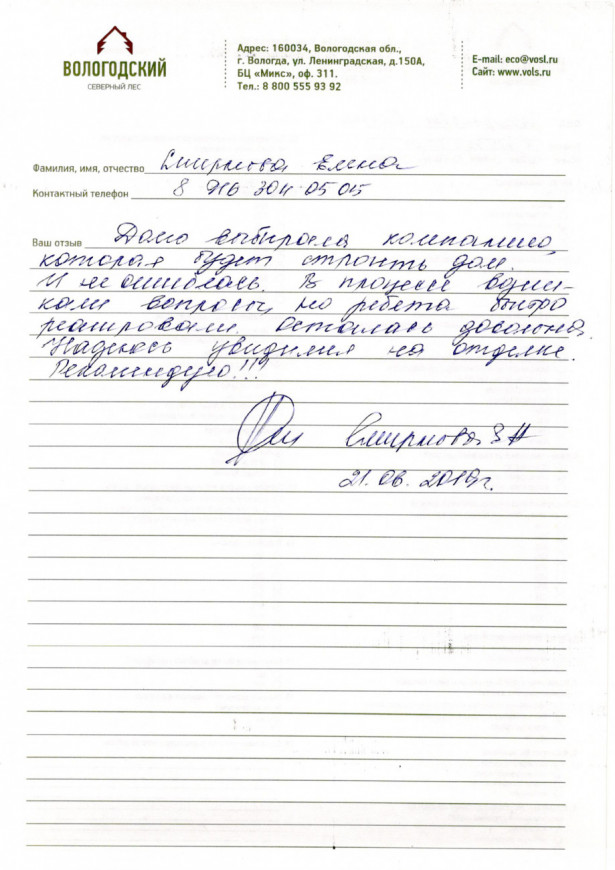 ВОЛОГОДСКИЙ
СЕВЕРНЫЙ ЛЕС
Адрес: 160034, Вологодская обл.,
г. Вологда, ул. Ленинградская, д.150А,
БЦ «Микс», оф. 311.
Тел.: 8 800 555 93 92
E-mail: eco@vosl.ru
Сайт: www.vols.ru
Фамилия, имя, отчество Смирнова Елена
Контактный телефон 8 916 304 05 05
Ваш отзыв Долго выбирала компанию,
которая будет строить дом.
И не ошиблась. В процессе возни-
кали вопросы, но ребята быстро
реагировали. Осталась довольна.
Надеюсь увидимся на отделке.
Рекомендую!!!
Смирнова
21.06.2019г.